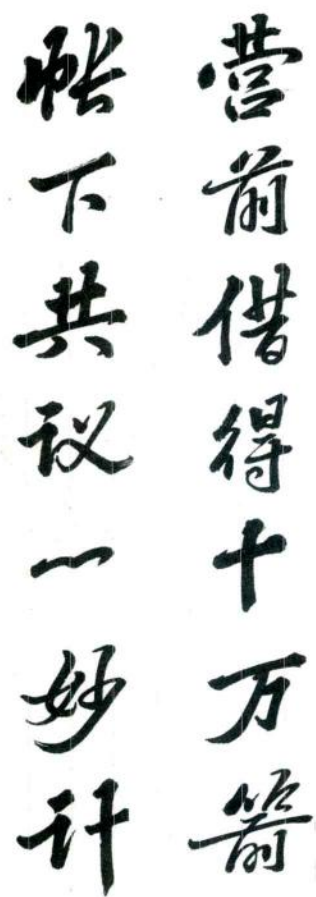 营前借得十万箭
帐下共议一妙计